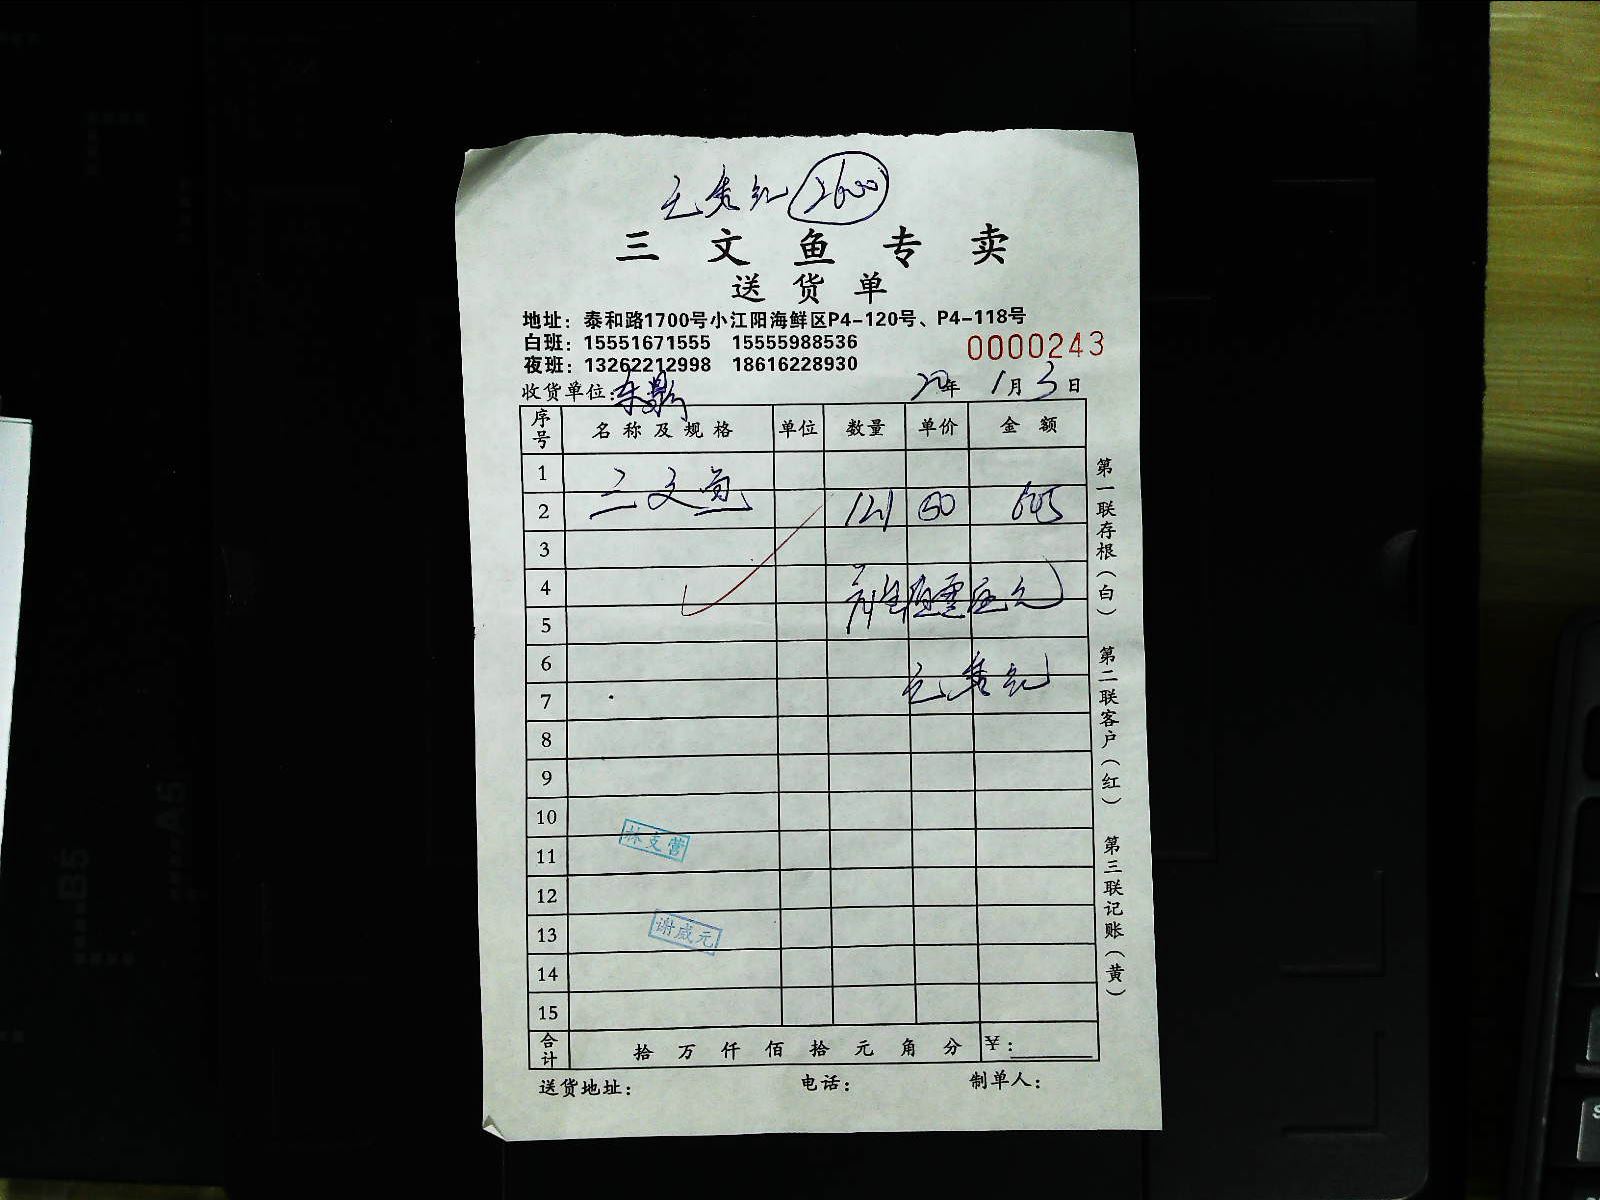 2600
三文鱼专卖
送货单
地址：泰和路1700号小江阳海鲜区P4-120号、P4-118号
白班：15551671555 15555988536
0000243
夜班：13262212998 18616228930
收货单位：东鼎 20年 1月3日
序号 名称及规格 单位 数量 单价 金额
1
2 三文鱼 121 50 605
3
4
5
6
7
8
9
10
11 林支营
12
13 谢咸元
14
15
合计 拾 万 仟 佰 拾 元 角 分 ￥：
送货地址： 电话： 制单人：
第一联存根（白） 第二联客户（红） 第三联记账（黄）
B5
A5